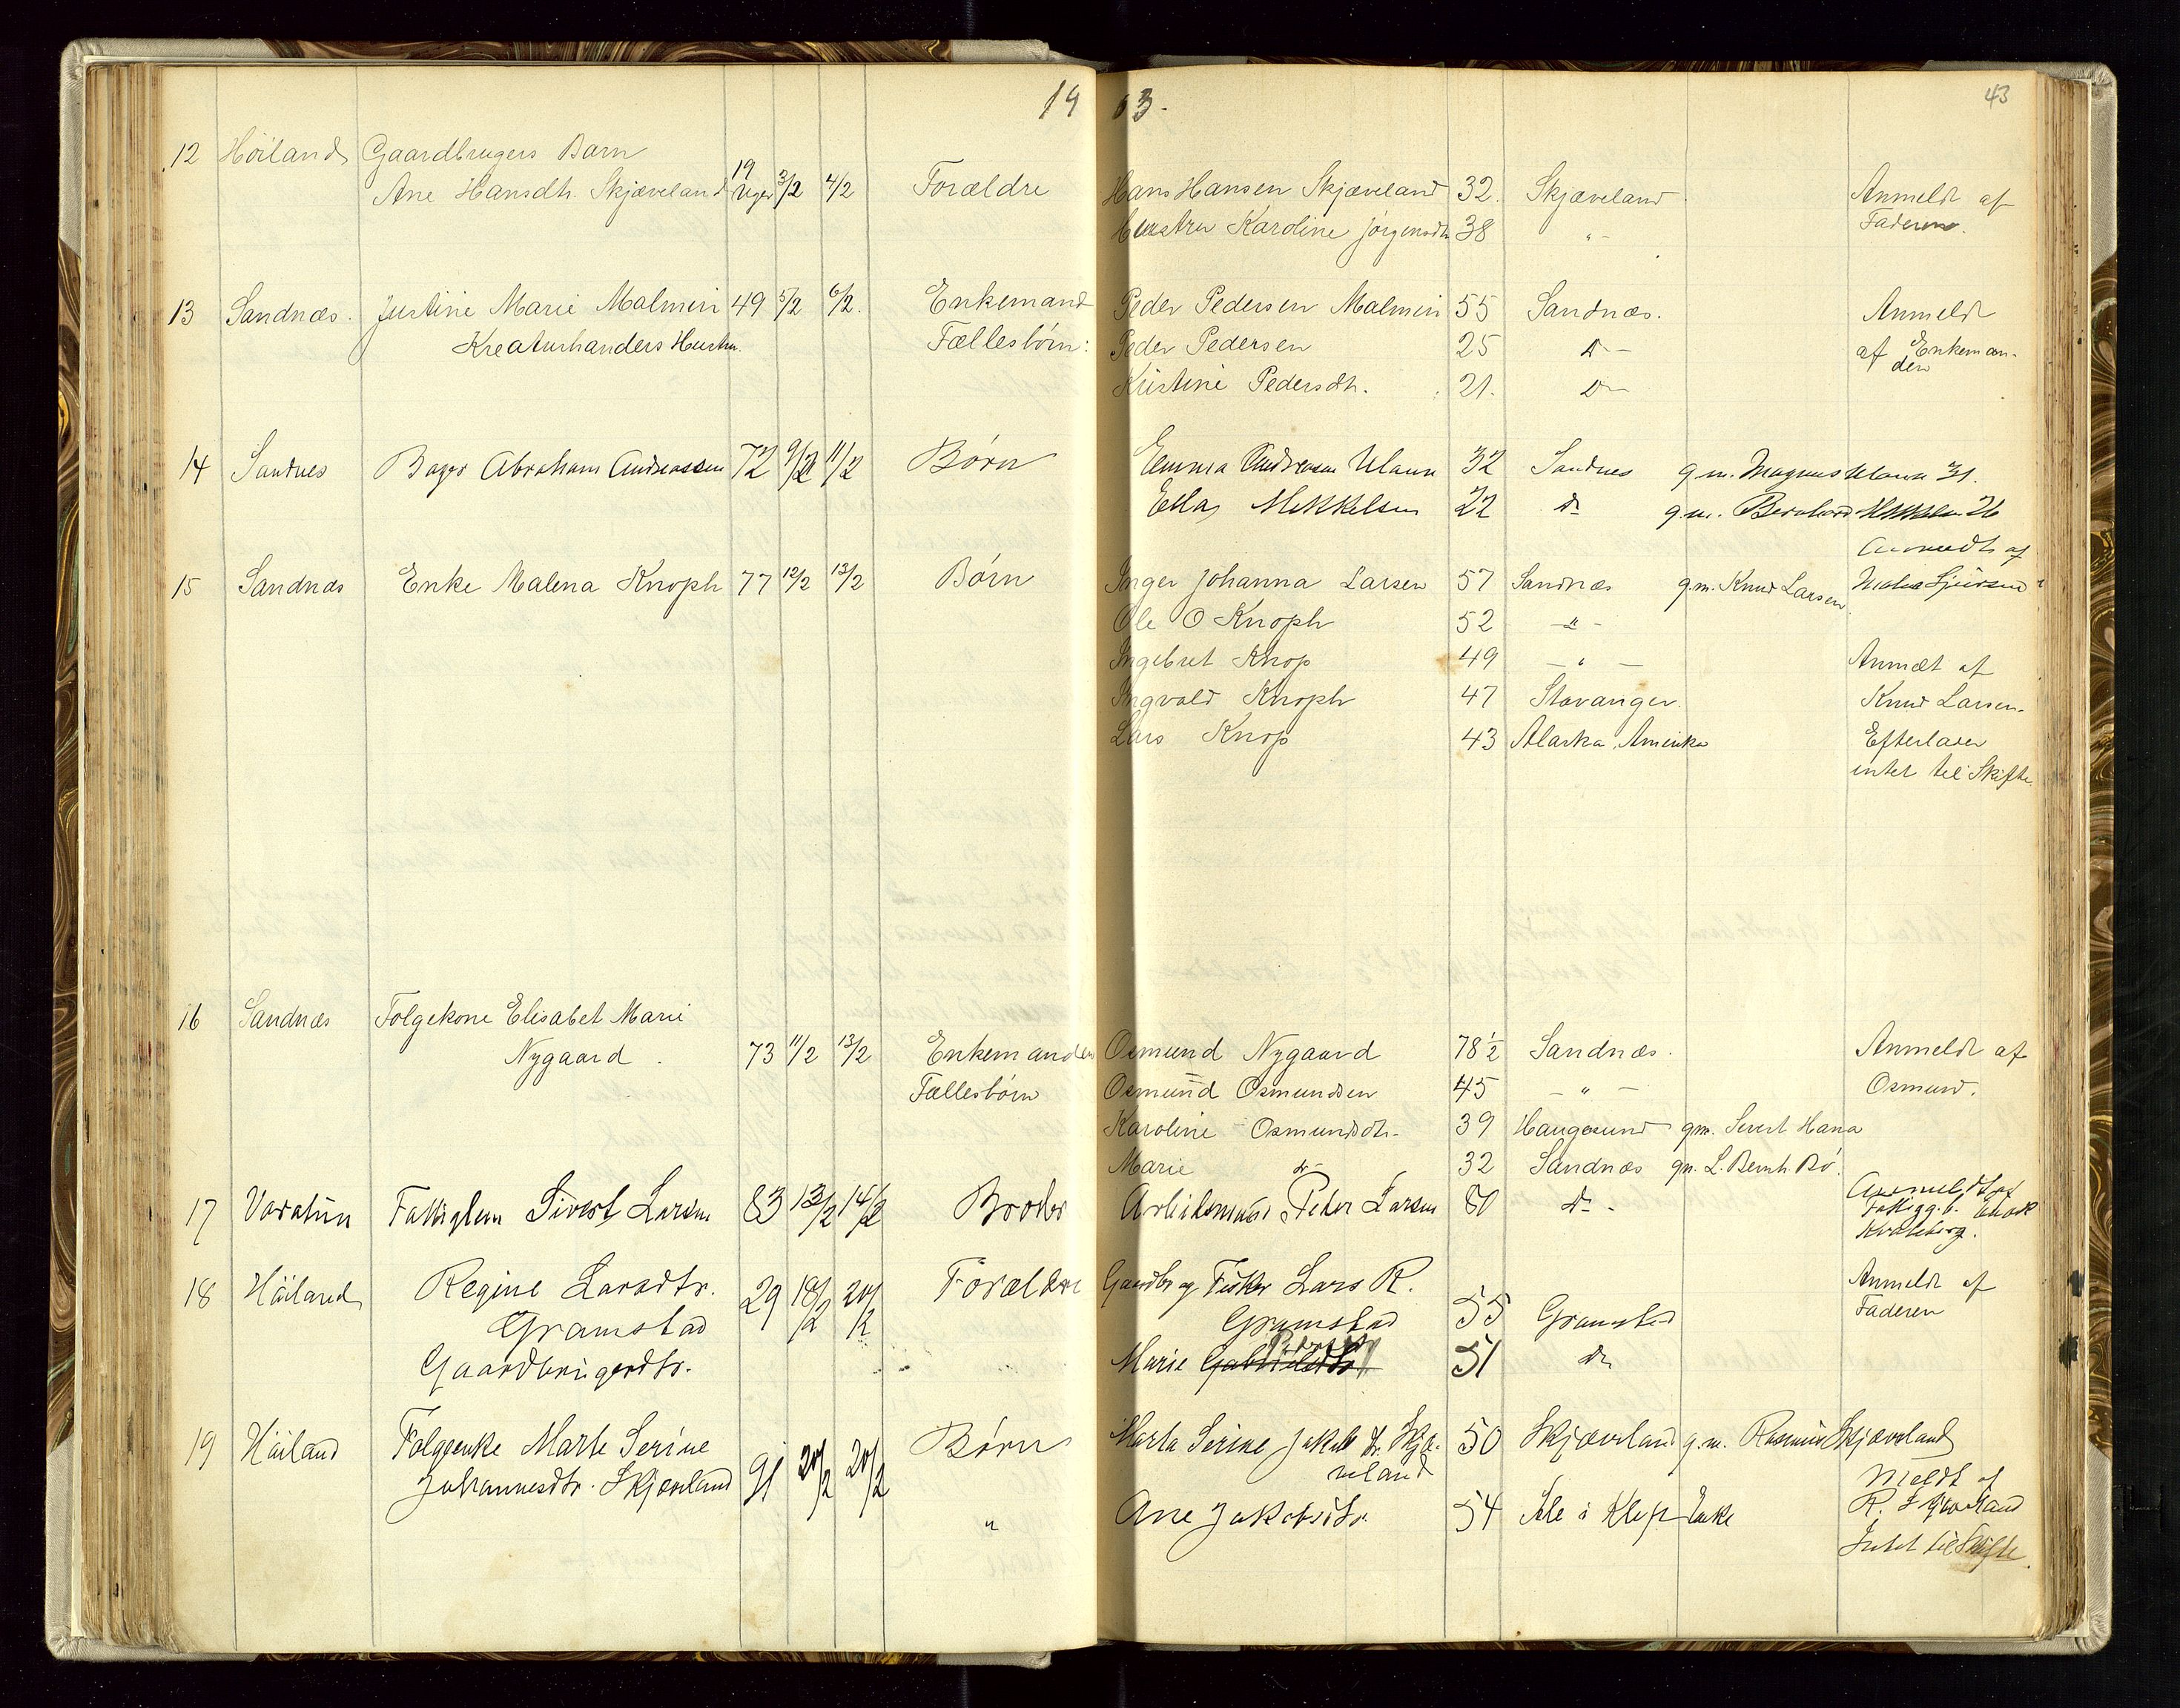 19 03.
43
12 Höiland Gaardbrugers Barn
Ane Hansdtr. Skjæveland 19 Uger 3/2 4/2 Forældre Hans Hansen Skjæveland 32. Skjæveland Anmeldt af
Hustru Karoline Jörgensdtr 38 " - Faderen.
13 Sandnæs. Justine Marie Malmin 49 5/2 6/2. Enkemand Peder Pedersen Malmin 55 Sandnæs. Anmeldt
Kreaturhanders Hustru. Fællesbörn: Peder Pedersen 25 Do - af Enkeman-
den
Kristine Pedersdtr. 21. Do
14 Sandnes Bager Abraham Andreassen 72 9/2 11/2 Börn Emma Ulaun 32 Sandnes g.m. Magnus 31.
Ella Mikkelsen 22 Do g.m. Bernhard 26
Anmeldt af
15 Sandnæs Enke Malena Knoph 77 12/2 13/2 Börn Inger Johanna Larsen 57 Sandnæs g.m. Knud Larsen
Ole O Knoph 52 - " -
Ingebret Knop 49 - " - Anmæt af
Ingvald Knoph 47 Stavanger. Knud Larsen.
Lars Knop 43 Alaska, Amerika Efterlader
intet til Skifte.
16 Sandnæs Folgekone Elisabet Marie
Nygaard. 73 11/2 13/2 Enkemanden Osmund Nygaard 78 1/2 Sandnæs. Anmeldt af
Fællesbörn Osmund Osmundsen 45 " - Osmund.
Karoline Osmundsdtr. 39 Haugesund gm. Sivert Hana
Marie do 32 Sandnæs gm. L. Bernh. Bö.
17 Varatun Fattiglem Sivert Larsen 83 13/2 14/2 Broder Arbeidsmand Peder Larsen 80 Do - Anmeldt af
Kvaleberg.
18 Höiland Regine Larsdtr. 29 18/2 20/2 Forældre Gaardbr og Fisker Lars R. Anmeldt af
Gramstad Gramstad 55 Gramstad Faderen
Gaardbrugerdtr. Marie Gabrielsdtr 51 Do
19 Höiland Folgeenke Marte Serine Börn Marta Serine Jakobsdtr. Skjæ- 50 Skjæveland g.m. Rasmus Skjæveland
Johannesdtr. Skjæveland 91 20/2 20/2 veland Meldt af
" Ane Jakobsdtr. 54 Sele i Klep Enke R. Skjæveland
Intet til Skifte.